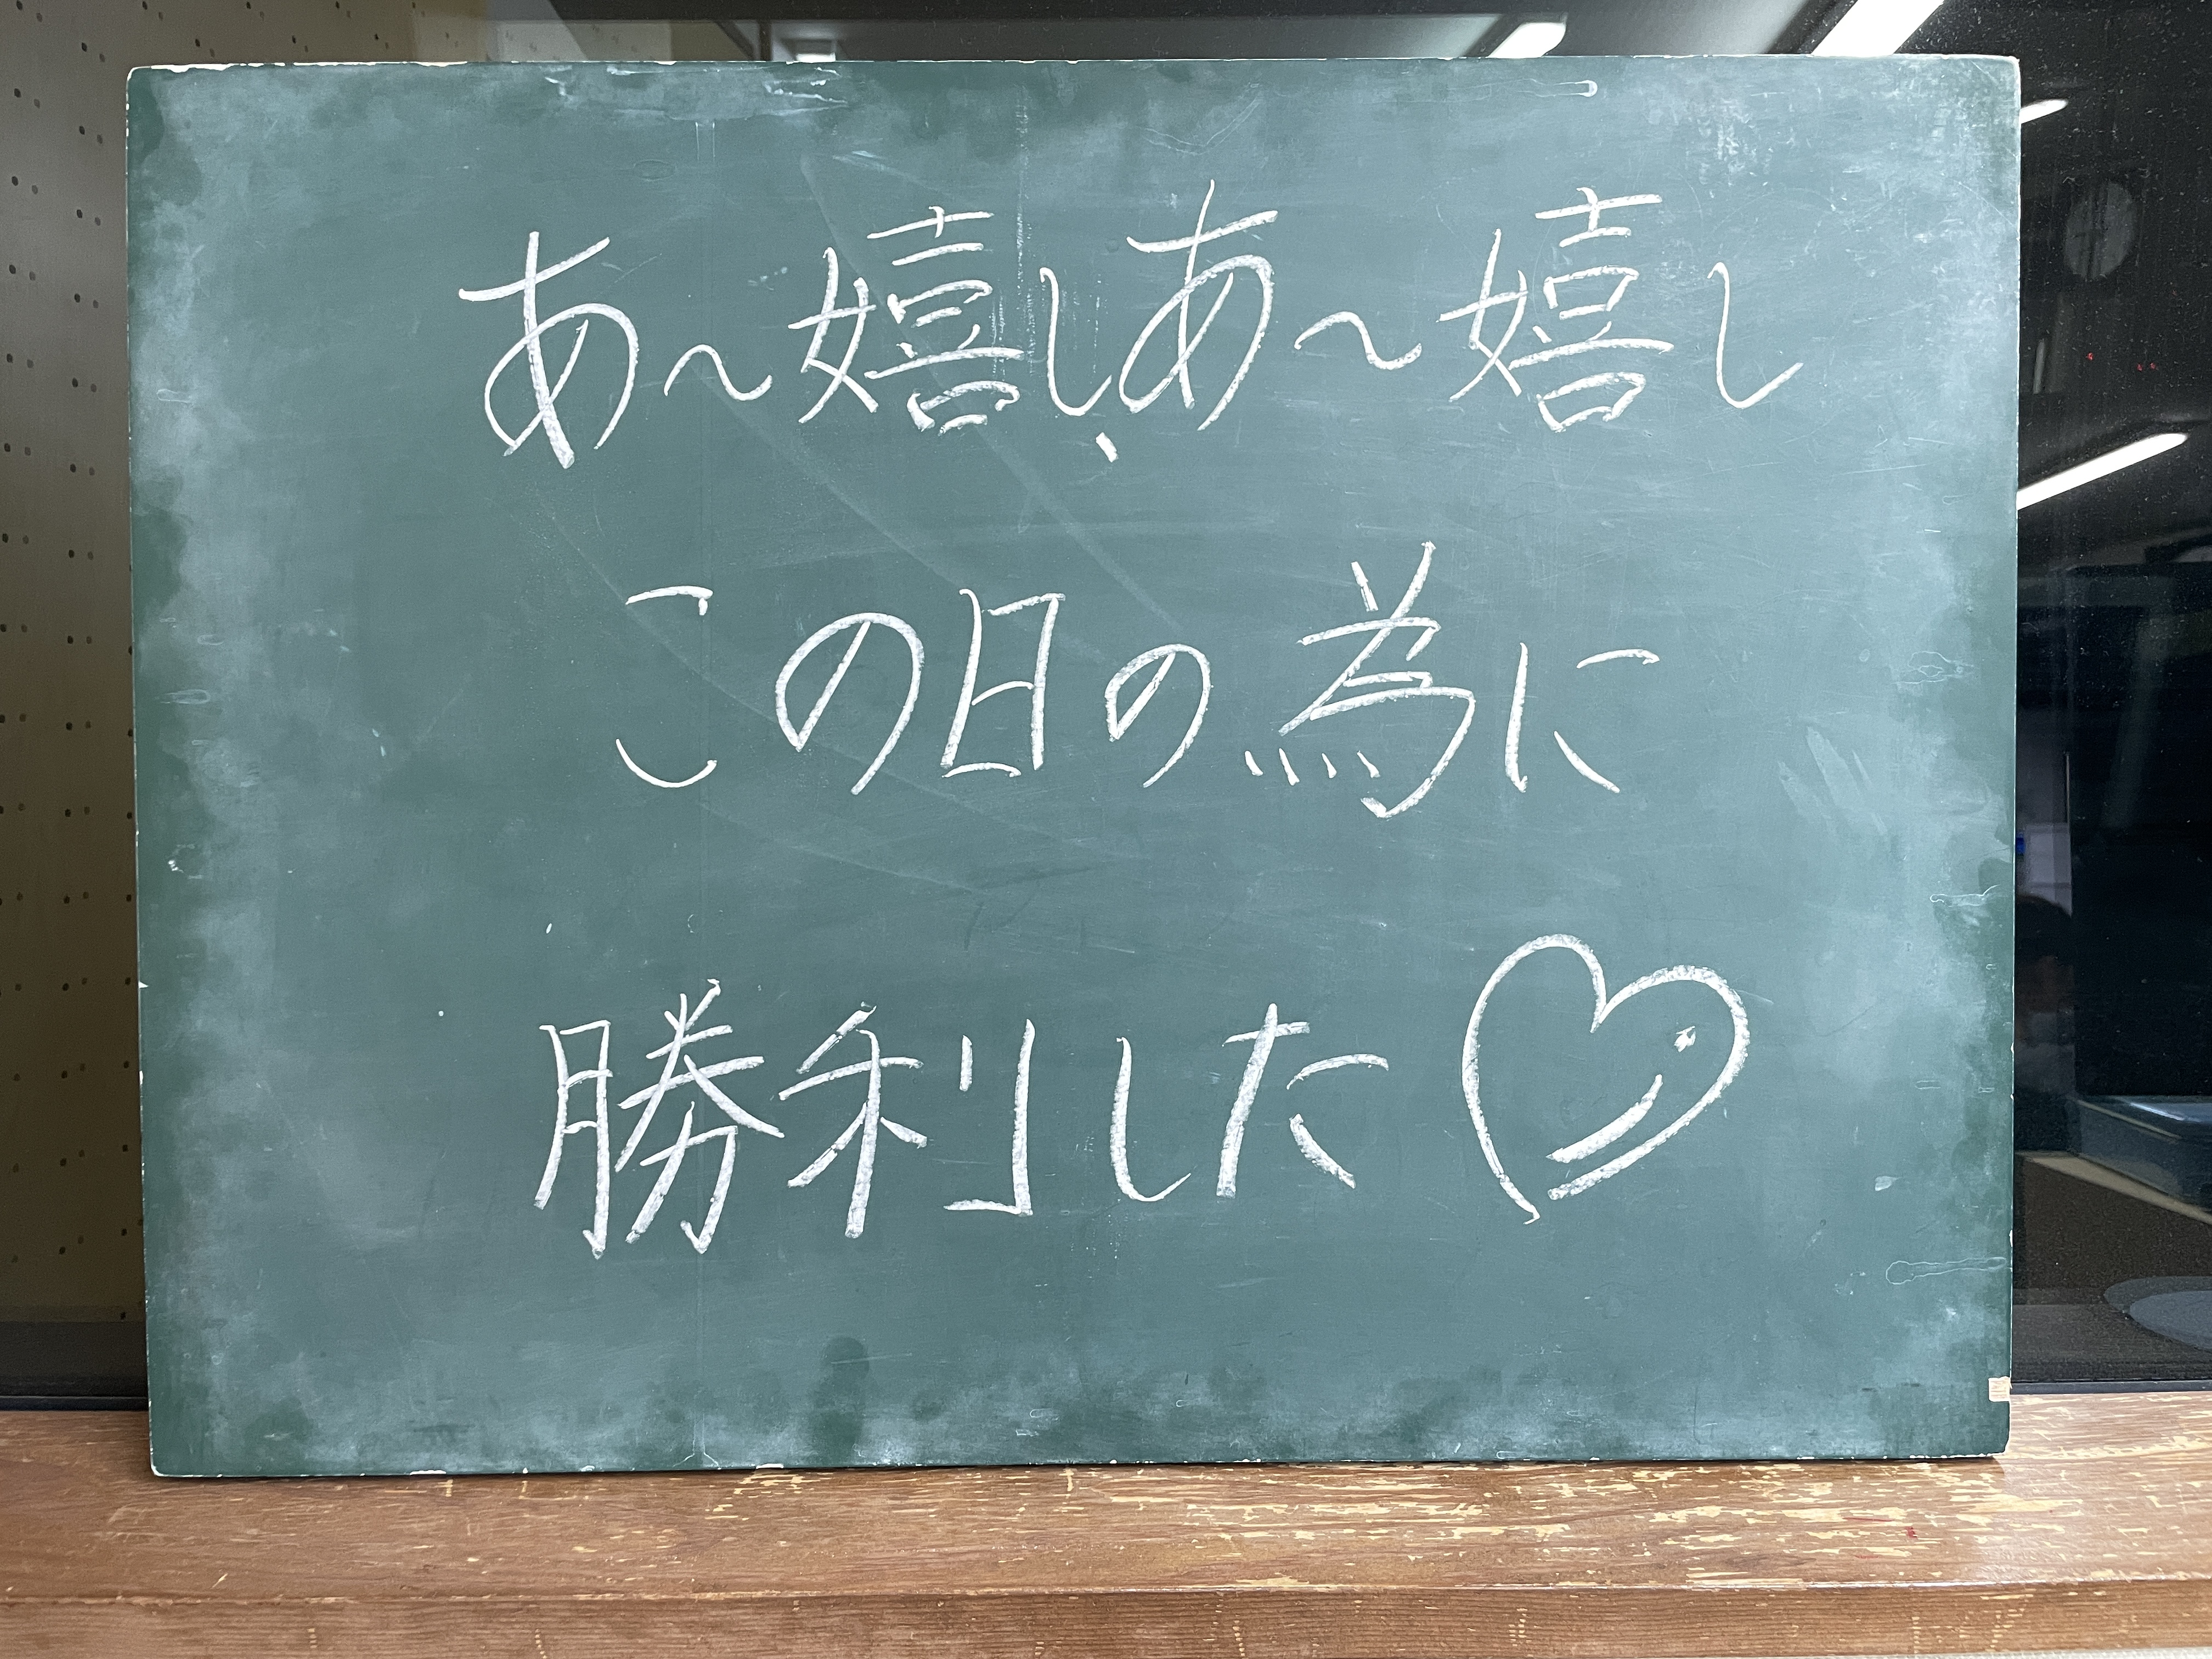 あ〜嬉し、あ〜嬉し
この日の為に
勝利した♡